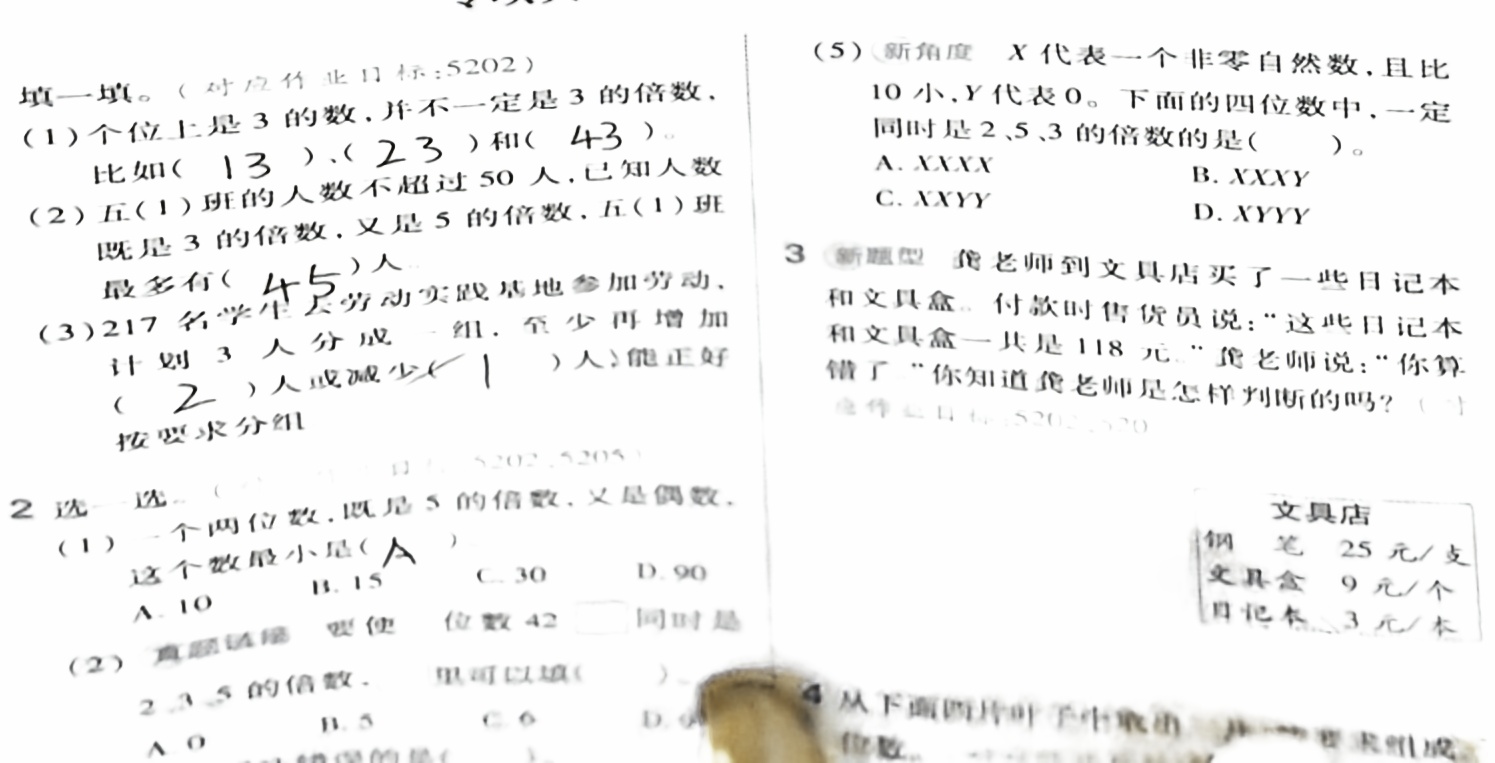 填一填。(对应作业目标:5202)
(1)个位上是3的数,并不一定是3的倍数,
比如( 13 )、( 23 )和( 43 )。
(2)五(1)班的人数不超过50人,已知人数
既是3的倍数,又是5的倍数,五(1)班
最多有( 45 )人
(3)217名学生去劳动实践基地参加劳动,
计划3人分成一组,至少再增加
( 2 )人或减少( 1 )人,能正好
按要求分组
2 选一选。(
5202、5205)
(1)一个两位数,既是5的倍数,又是偶数,
这个数最小是( A )
A. 10 B. 15 C. 30 D. 90
(2) 真题链接 要使 位数42□同时是
2、3、5的倍数, 里可以填( )
A. 0 B. 5 C. 6 D. 9
的是( )
(5) 新角度 X代表一个非零自然数,且比
10小,Y代表0。下面的四位数中,一定
同时是2、5、3的倍数的是( )。
A. XXXX B. XXXY
C. XXYY D. XYYY
3 新题型 龚老师到文具店买了一些日记本
和文具盒。付款时售货员说:“这些日记本
和文具盒一共是118元。”龚老师说:“你算
错了。”你知道龚老师是怎样判断的吗?(对
应作业目标:5202、520
文具店
钢笔 25元/支
文具盒 9元/个
日记本 3元/本
4 从下面四片叶子中取出 要求组成
位数。